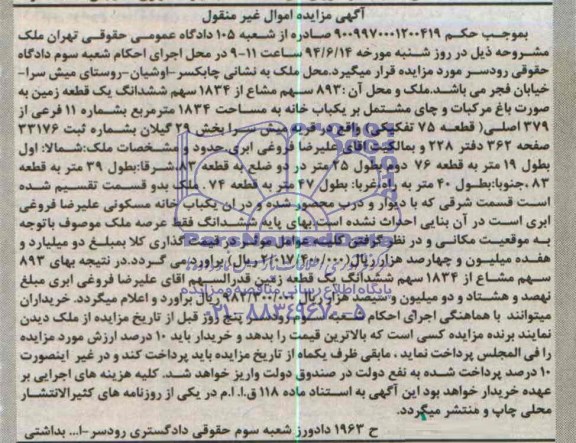 آگهی مزایده اموال غیر منقول
بموجب حکم ۹۰۰۹۹۷۰۰۰۱۲۰۰۴۱۹ صادره از شعبه ۱۰۵ دادگاه عمومی حقوقی تهران ملک
مشروحه ذیل در روز شنبه مورخه ۹۴/۶/۱۴ ساعت ۱۱-۹ در محل اجرای احکام شعبه سوم دادگاه
حقوقی رودسر مورد مزایده قرار میگیرد.محل ملک به نشانی چابکسر-اوشیان-روستای میش سرا-
خیابان فجر می باشد.ملک و محل آن :۸۹۳ سهم مشاع از ۱۸۳۴ سهم ششدانگ یک قطعه زمین به
صورت باغ مرکبات و چای مشتمل بر یکباب خانه به مساحت ۱۸۳۴ مترمربع بشماره ۱۱ فرعی از
۳۷۹ اصلی( قطعه ۷۵ تفکیکی) واقع در قریه میش سرا بخش ۲۹ گیلان بشماره ثبت ۳۳۱۷۶
صفحه ۳۶۲ دفتر ۲۲۸ و بمالکیت اقای علیرضا فروغی ابری.حدود و مشخصات ملک:شمالا: اول
بطول ۱۹ متر به قطعه ۷۶ دوم بطول ۲۵ متر در دو ضلع به قطعه ۸۳ .شرقا:بطول ۳۹ متر به قطعه
۸۳ ،جنوبا:بطول ۴۰ متر به راه،غربا: بطول ۴۷ متر به قطعه ۷۴ . ملک بدو قسمت تقسیم شده
است قسمت شرقی که با دیوار و درب محصور شده و در ان یکباب خانه مسکونی علیرضا فروغی
ابری است در آن بنایی احداث نشده است.بهای پایه ششدانگ فقط عرصه ملک موصوف باتوجه
به موقعیت مکانی و در نظر گرفتن کلیه عوامل موثر در قیمت گذاری کلا بمبلغ دو میلیارد و
هفده میلیون و چهارصد هزار ریال(۲/۰۱۷/۴۰۰/۰۰۰ ریال) براورد می گردد.در نتیجه بهای ۸۹۳
سهم مشاع از ۱۸۳۴ سهم ششدانگ یک قطعه زمین قدرالسهم اقای علیرضا فروغی ابری مبلغ
نهصد و هشتاد و دو میلیون و سیصد هزار ریال ۹۸۲/۳۰۰/۰۰۰ ریال براورد و اعلام میگردد. خریداران
میتوانند با هماهنگی اجرای احکام شعبه سوم رودسر پنج روز قبل از تاریخ مزایده از ملک دیدن
نمایند برنده مزایده کسی است که بالاترین قیمت را بدهد و خریدار باید ۱۰ درصد ارزش مورد مزایده
را فی المجلس پرداخت نماید ، مابقی ظرف یکماه از تاریخ مزایده باید پرداخت کند و در غیر اینصورت
۱۰ درصد پرداخت شده به نفع دولت در صندوق دولت واریز خواهد شد. کلیه هزینه های اجرایی بر
عهده خریدار خواهد بود این آگهی به استناد ماده ۱۱۸ ق.ا. ا.م در یکی از روزنامه های کثیرالانتشار
محلی چاپ و منتشر میگردد.
ح ۱۹۶۳ دادورز شعبه سوم حقوقی دادگستری رودسر-ا... بداشتی
پایگاه اطلاع رسانی مناقصه و مزایده
۰۲۱-۸۸۳۴۹۶۷۰-۵